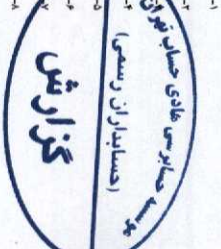 موسسه حسابرسی هادی حساب تهران
(حسابداران رسمی)
گزارش